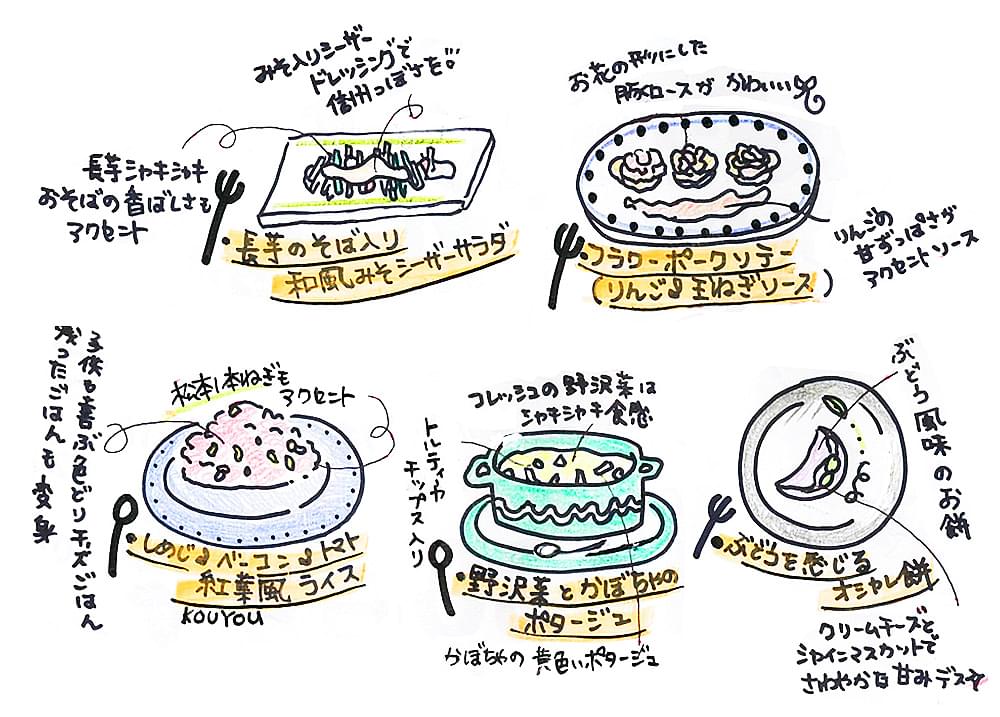 みそ入りシーザー
ドレッシングで
信州っぽさを!!!
長芋シャキシャキ
おそばの香ばしさも
アクセント
・長芋のそば入り
和風みそシーザーサラダ
お花の形にした
豚ロースが かわいい
りんごの
甘ずっぱさが
アクセントソース
・フラワーポークソテー
(りんご&玉ねぎソース)
子供も喜ぶ色どりチーズごはん
残ったごはんも変身
松本1本ねぎも
アクセント
・しめじ&ベーコン&トマト
紅葉風ライス
KOUYOU
フレッシュの野沢菜は
シャキシャキ食感
トルティーヤ
チップス入り
・野沢菜とかぼちゃの
ポタージュ
かぼちゃの黄色いポタージュ
ぶどう風味のお餅
・ぶどうを感じる
オシャレ餅
クリームチーズと
シャインマスカットで
さわやかな甘みデス